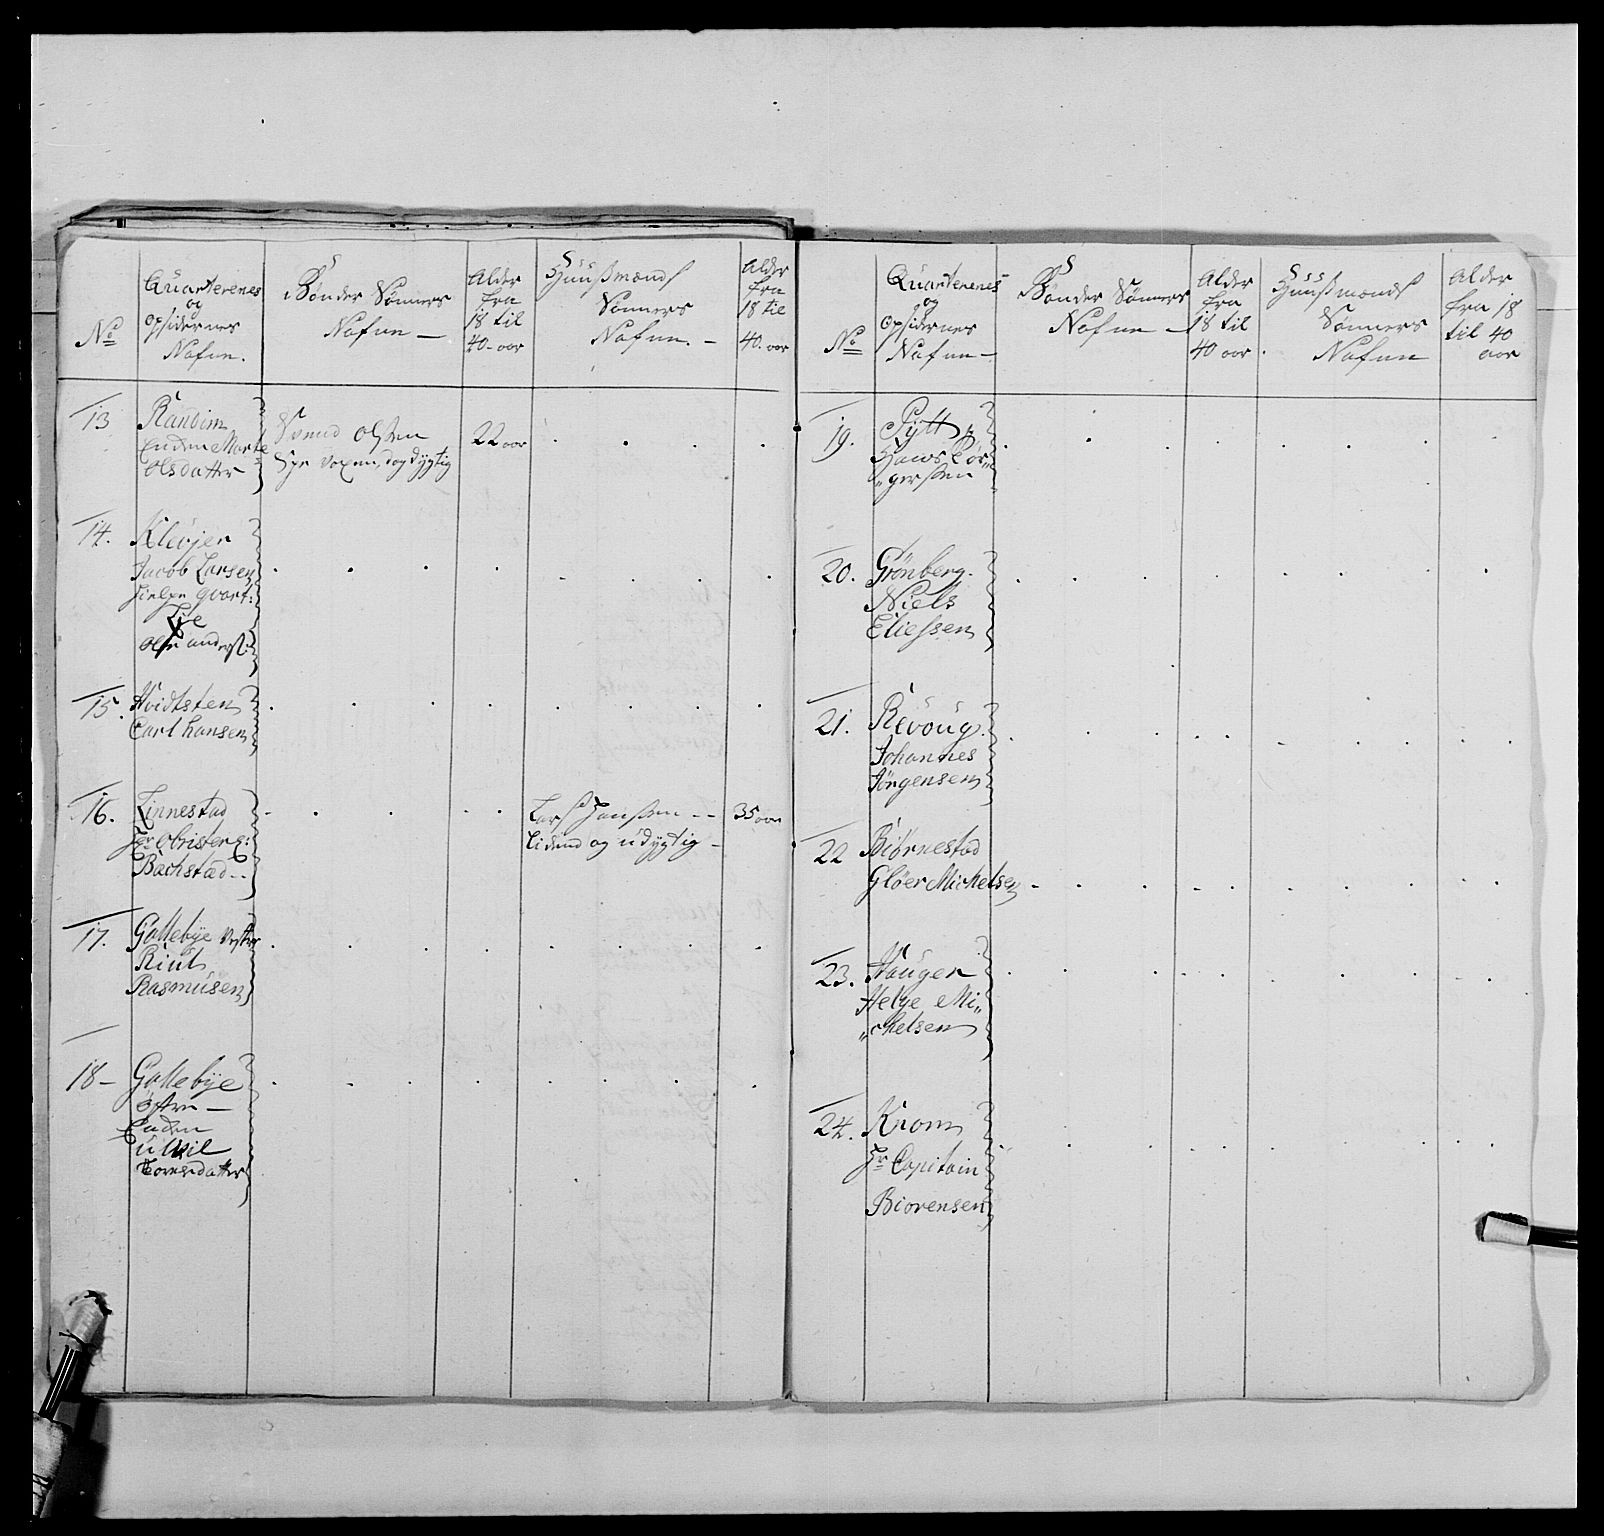 No
Quarterenes
og
opsidernes
Nafne.
Bønder Sønners
Nafne —
Alder
fra
18 til
40 - aar
Huusmænds
Sønners
Nafne. —
Alder
fra
18 til
40. aar
13
Randim
Enchen Marte
Olsdatter
Svend Olsen
22 aar
voxen, dog dygtig
14.
Klevjer
Jacob Larsen
hielpe qvart:
Lie
Ole anders:
15.
Hvidtsten
Carl hansen
16.
Linnestad
Hr Obrister
Bachstad
Lars Hansen - -
35 aar
lidend og udygtig -
17.
Gallebye vester
Knut
Rasmusen
18 -
Gallebye
østre —
Enchen
Toresdatter
No
Quarterenes
og
opsidernes
Nafne —
Bønder Sønners
Nafne —
Alder
fra
18 til
40 aar.
Huusmænds
Sønners
Nafne
Alder
fra 18
til 40
aar
19.
Pytt
Hans Bør„
„gersen
20.
Grønberg.
Niels
Eliessen
21.
Revoug.
Johannes
Jørgensen
22
Biørnestad
Gløer Michelsen
23.
Hauger
Helge Mi„
„chelsen
24.
Krom
Hr Capitain
Biorensen